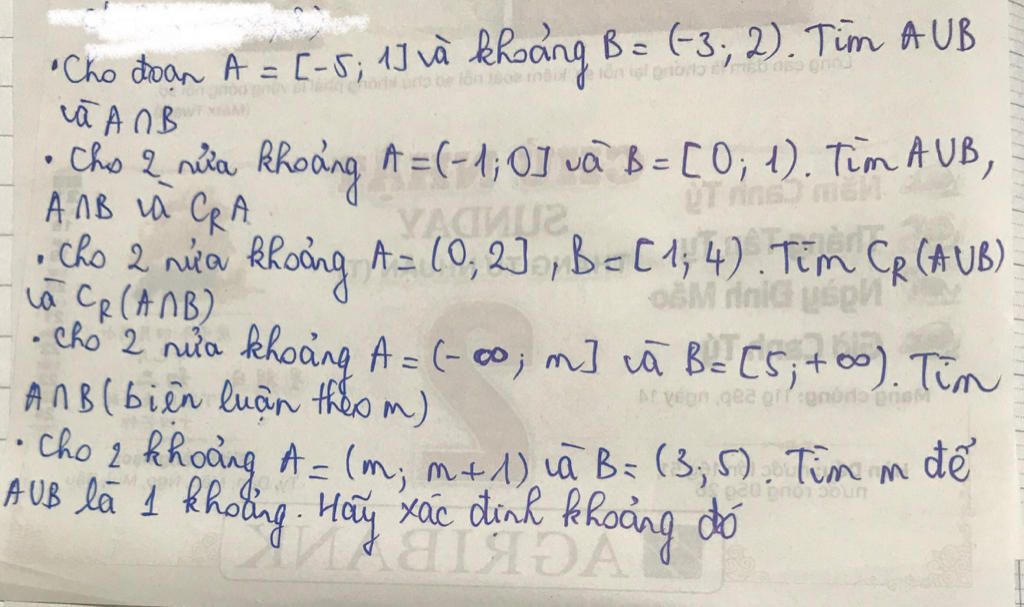 • Cho đoạn A = [-5; 1] và khoảng B = (-3; 2). Tìm A∪B
và A∩B
• Cho 2 nửa khoảng A = (-1; 0] và B = [0; 1). Tìm A∪B,
A∩B và CRA
• Cho 2 nửa khoảng A = (0; 2], B = [1; 4). Tìm CR(A∪B)
và CR(A∩B)
• Cho 2 nửa khoảng A = (-∞; m] và B = [5; +∞). Tìm
A∩B (biện luận theo m)
• Cho 2 khoảng A = (m; m+1) và B = (3; 5). Tìm m để
A∪B là 1 khoảng. Hãy xác định khoảng đó
SUNDAY
Năm Canh Tý
Ngày Đinh Mão
2
AGRIBANK